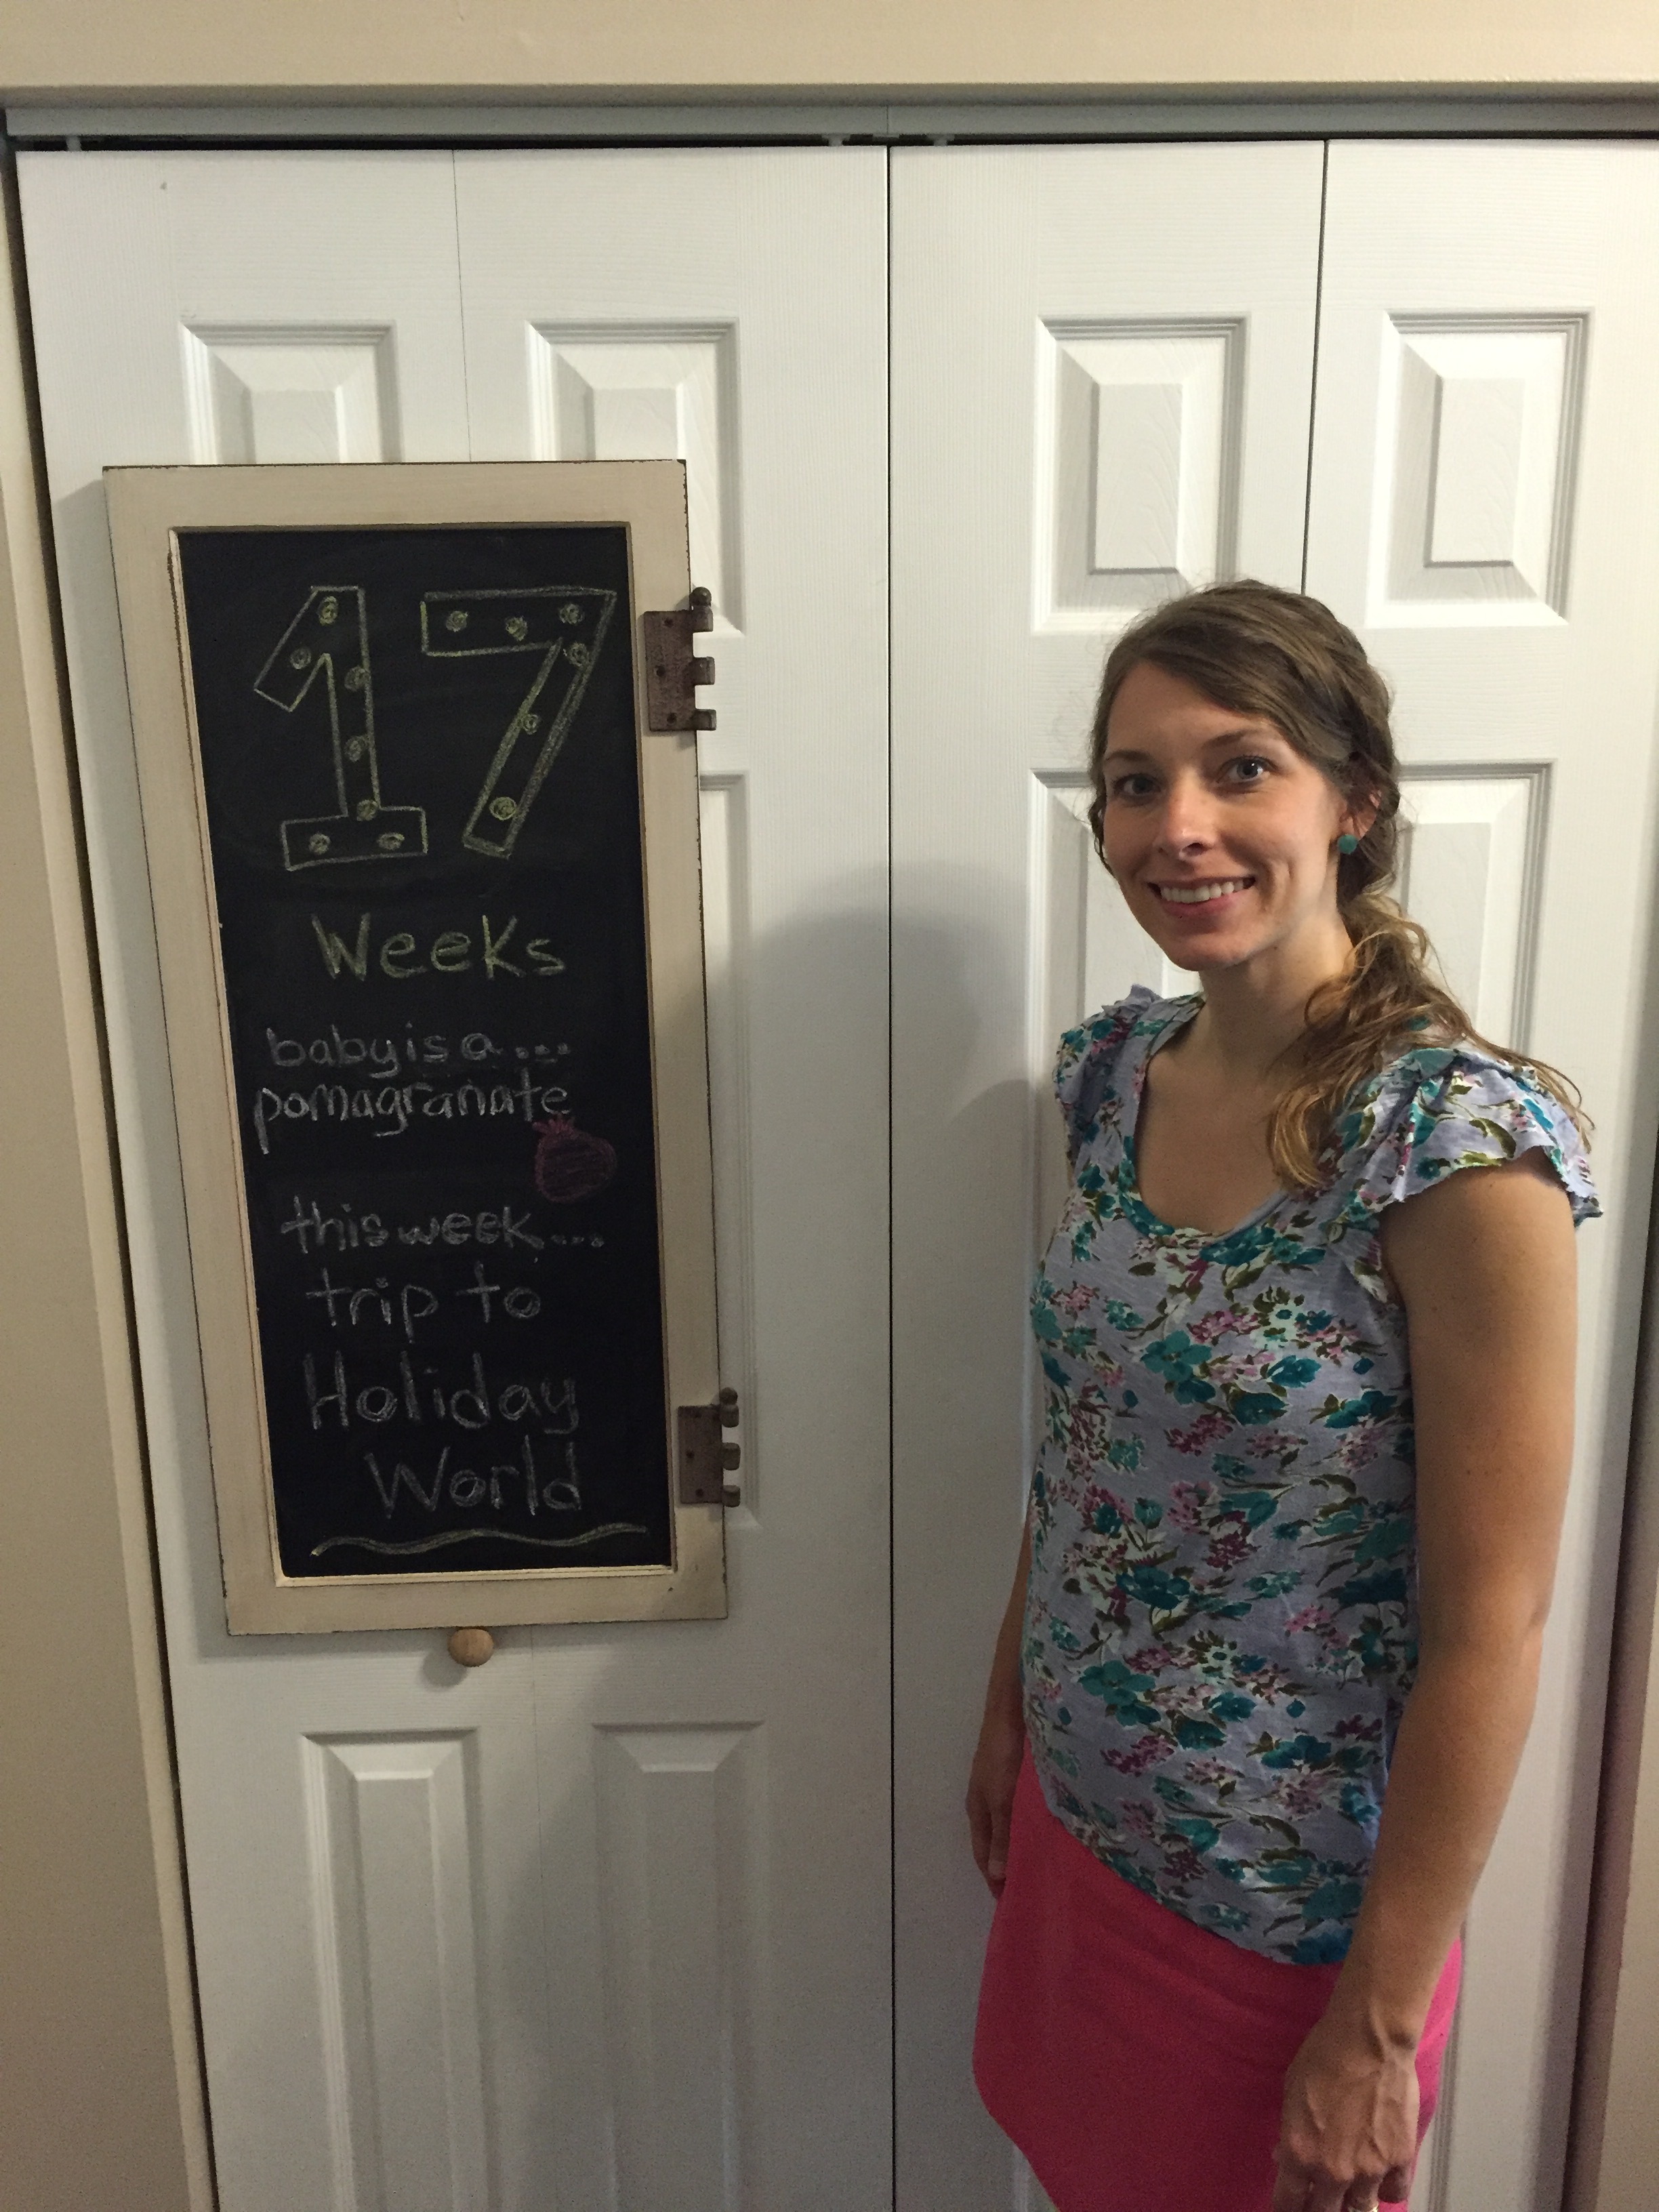 17
Weeks
baby is a...
pomagranate
this week...
trip to
Holiday
World